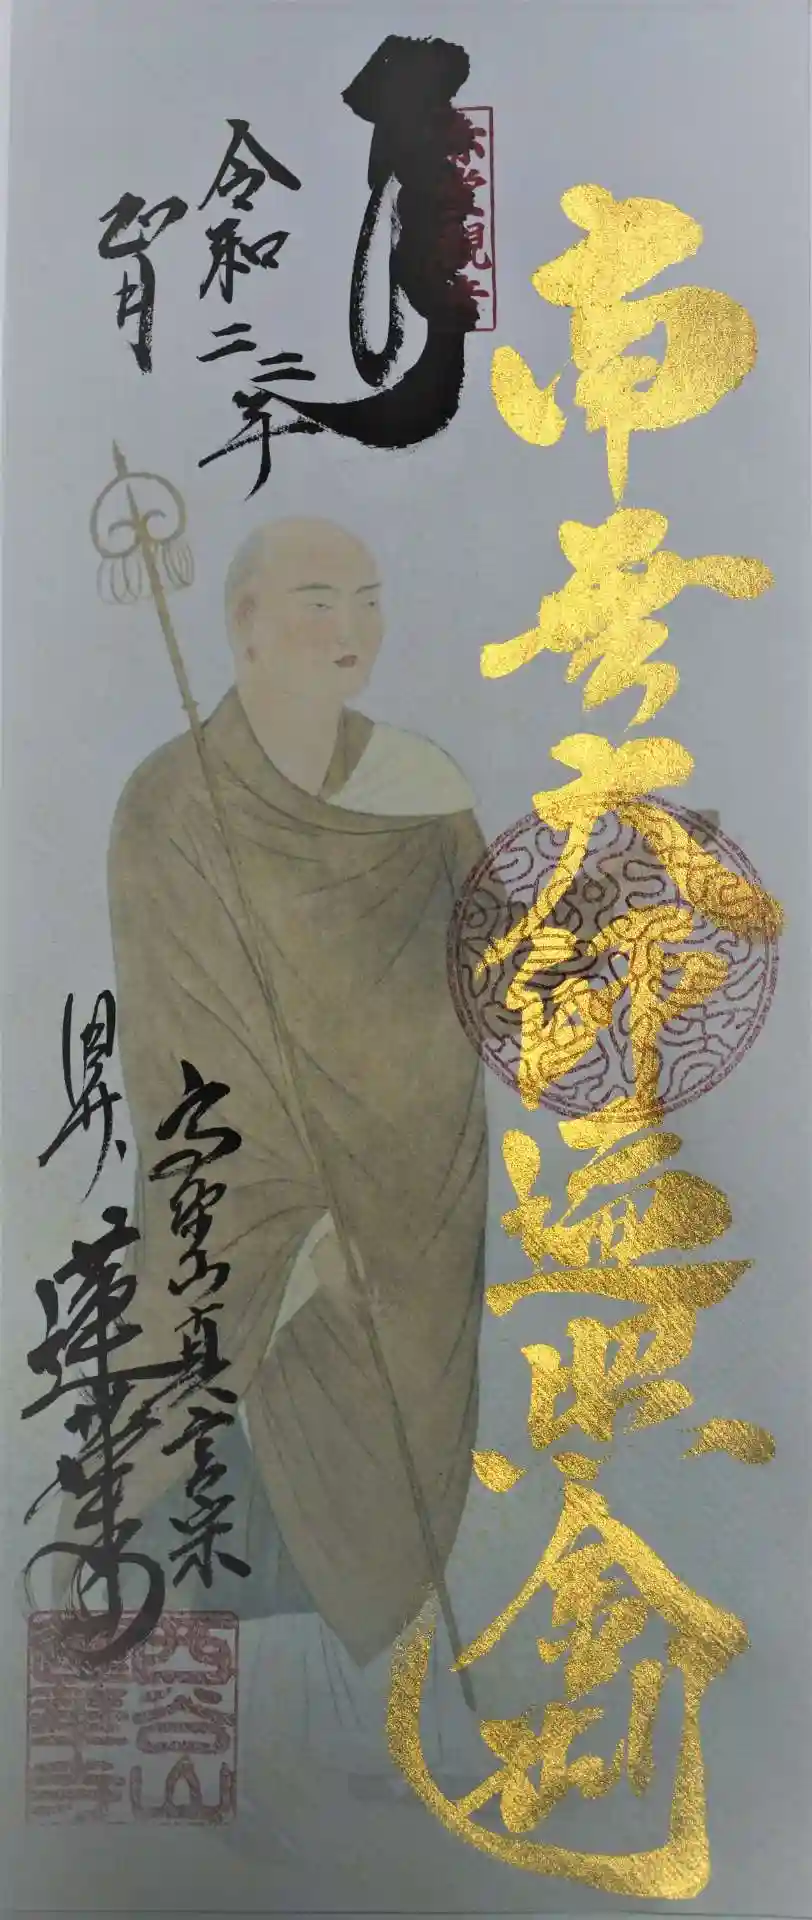 南無大師遍照金剛
令和二二年
正月
高野山真言宗
蓮華寺
西谷山
蓮華寺